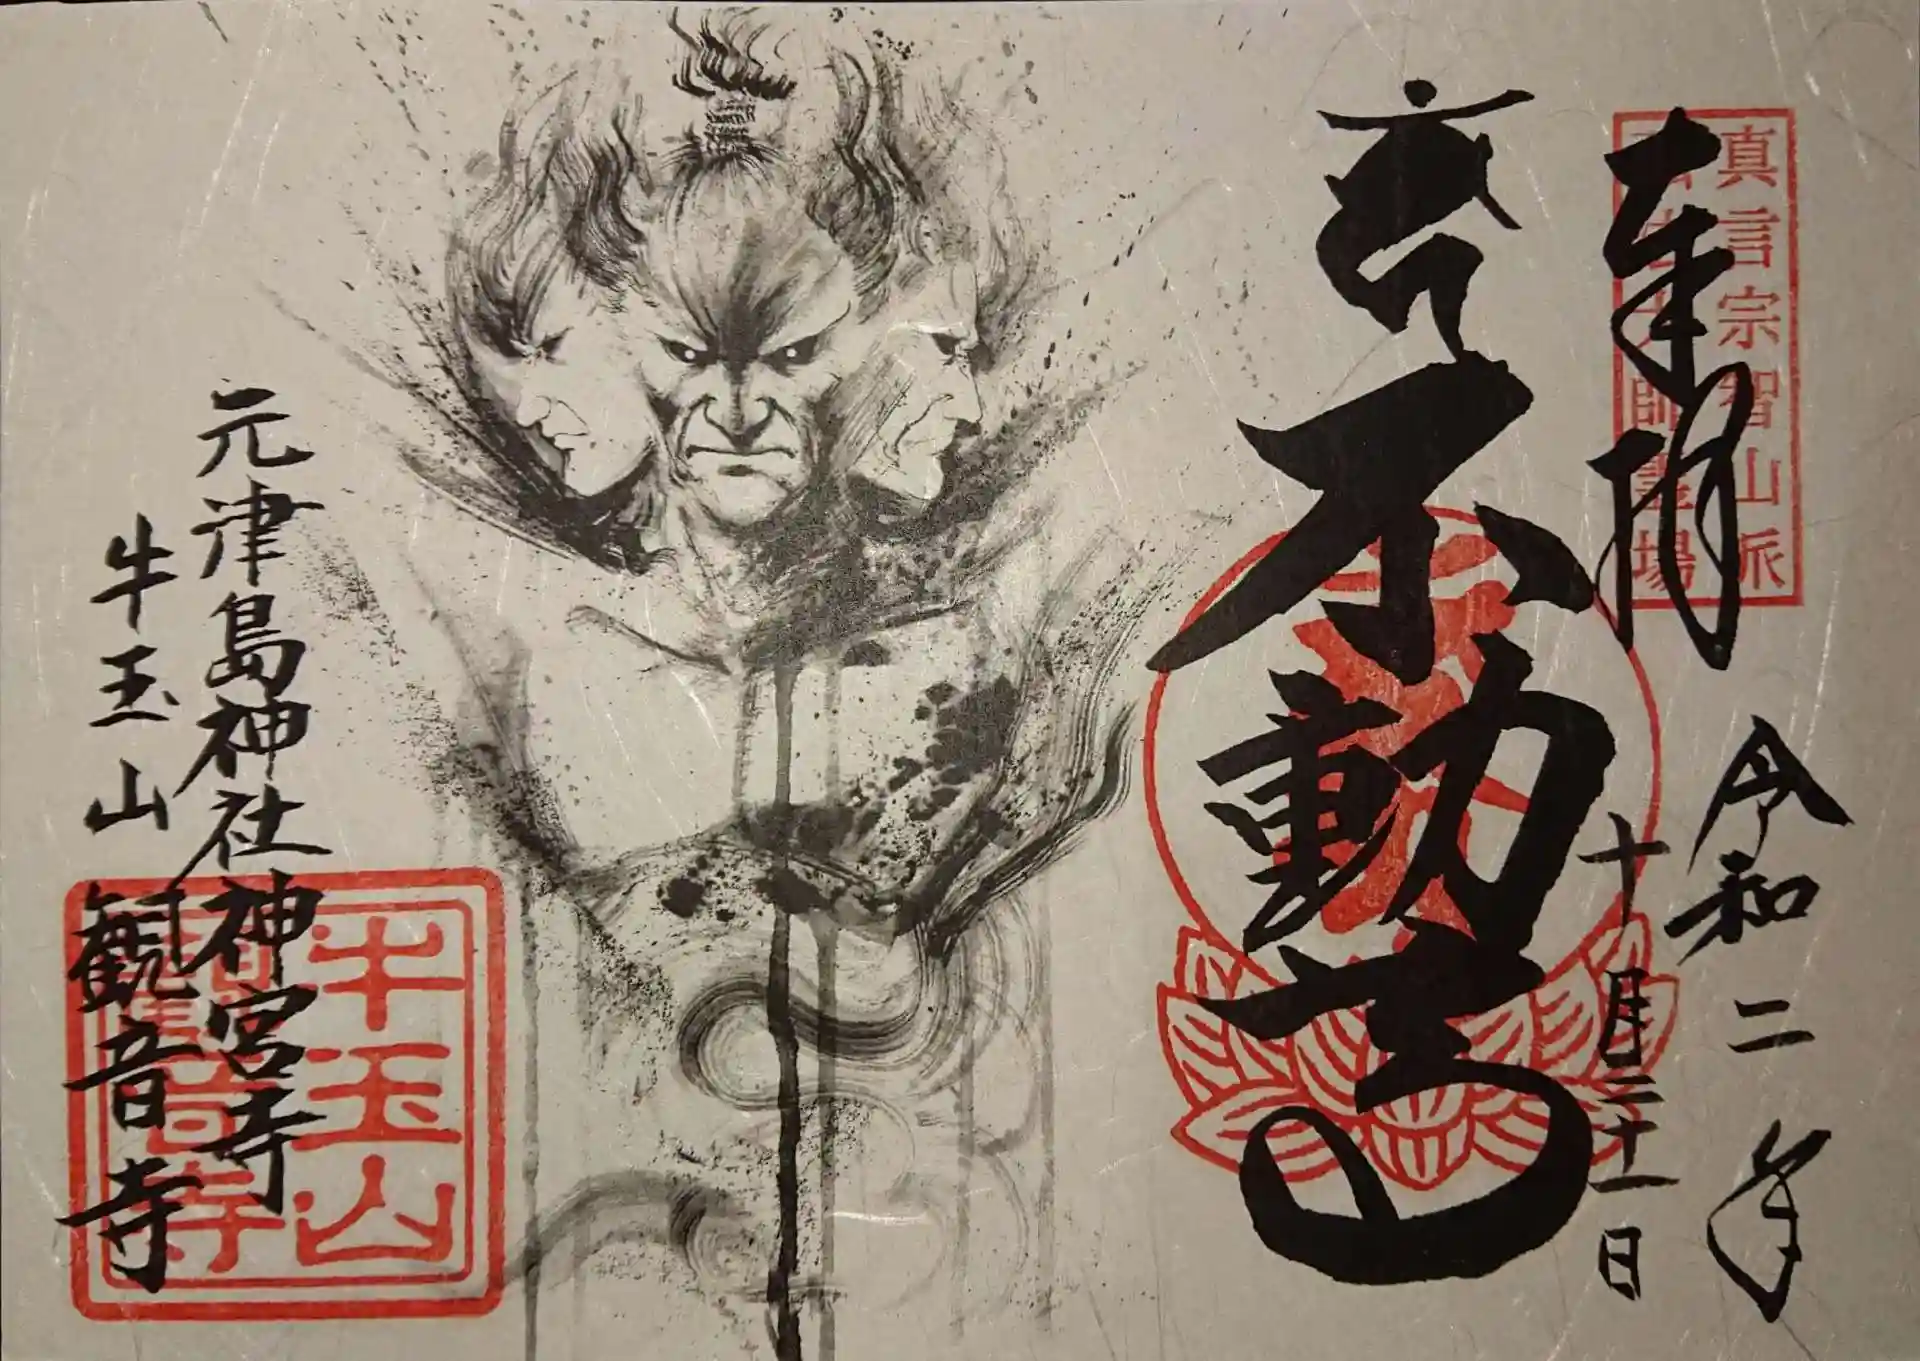 真言宗智山派
奉拝
令和二年
十月三十一日
不動尊
元津島神社神宮寺
牛玉山 観音寺
牛玉山